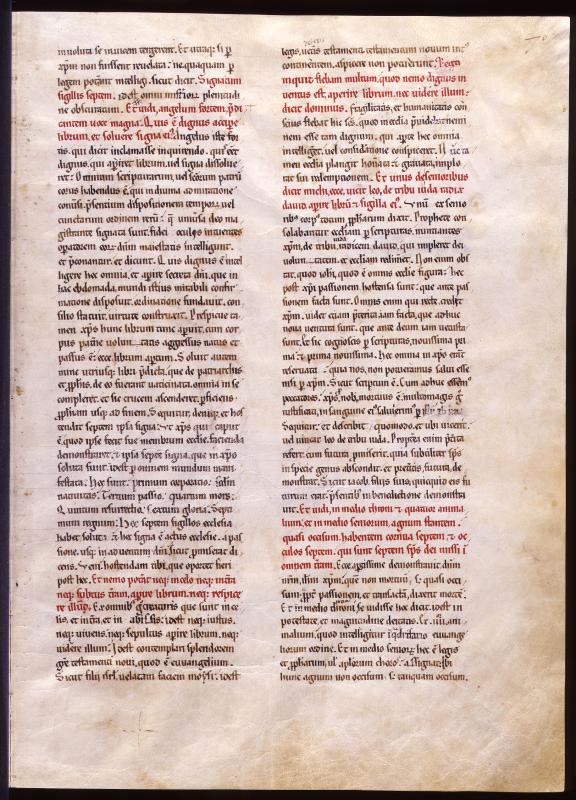 inuoluta se inuicem tergerent. Et utiaq; si p
xp̄m non fuissent reuelata: nequaquam p
legem potant intelligi. sicut dicit. Signatum
sigillis septem. idest omni mistiorū plenitudi
ne obscuratum. Et uidi, angelum fortem, p̄di
cantem uoce magna. Quis ē dignus accipe
librum, et soluere signa ei? Angelus iste for
tis, qui dicit inclamasse inquirendo, quis eēt
dignus, qui apiret librum, uel signa dissolue
ret. Omnium scripturarum, uel sctorum patrū
corus habendus ē, qui in diuina admiratione
p̄sentium dispositionem temporū, uel
cunctarum ordinem rerū: q̄ uniusa deo ma
gistrante signata sunt, fidei oculos intuentes
opatorem eorū dn̄m maiestatis intelligunt.
et p̄conantur, et dicunt. Quis dignus ē intel
ligere hec omnia, et apire secreta dn̄i, que in
hac ebdomada, mundi istius mirabili confir
matione disposuit, ordinatione fundauit, con
silio statuit, uirtute construxit. Prespicue ta
men xp̄s hunc librum tunc apuit, cum cor
pus patne uolun tatis aggressus natus et
passus ē: ecce librum aptum. Soluit autem
nunc utriusq; libri p̄dicta, que de patriarchis
et p̄phis, de eo fuerant uaticinata, omnia in se
compleret: et sic crucem ascenderet, pficiens
p̄phiam usq; ad finem. Sequitur, deniq; et hos
tendit septem ipsa signa. Et xp̄s qui caput
ē, quod ipse fecit sue membrum ecclie, facienda
demonstrauit, et ipsa septē signa, que in xp̄o
soluta sunt, idest p omnem mundum mani
festata. Hec sunt. primum corporatio. Sedm
natiuitas. Tertium passio. quartum mors.
Quintum resurrectio. Sextum gloria. Septi
mum regnum. Hec septem sigillos ecclesia
habet solutos: hec signa ē actus ecclesie. A pas
sione, usq; in aduentum dn̄i, sicut p̄misera dī
cens. Veni, hostendam tibi, que oportet fieri
post hec. Et nemo potat neq; in celo neq; in trā
neq; subtus trām, apire librum, neq; respice
re illum. Ex omnibus creaturis que sunt in ce
lis, et in trā, et in abissis: idest neq; iustus,
neq; uiuens, neq; sepultus apire librum, neq;
uidere illum. Idest contemplari splendorem
grē testamenti noui, quod ē euuangelium.
Sicut filii isrl uelatam faciem moysi: idest
legis, ueteris testamenti testamentum nouum int
continentem, aspicere non potuerunt. Et ego
inquid flebam multum, quod nemo dignus in
uentus est, apire librum, nec uidere illum:
dicit dominus. fragilitatis, et humanitatis con
scius flebat hic ses, quod in edia p̄uidebat nemi
nem esse tam dignum, qui apte hec omnia
intelliget, uel considatione conspiceret.
meri ecclia plangit honerata et grauata, implo
rat sui redemptionem. Et unus de senioribus
dicit michi, ecce, uicit leo, de tribu iuda radix
dauid, apire librū et sigilla ei. Unū ex senio
ribus corpus totum p̄pharum dixit. Prophete con
solabantur eccliam p scripturas, nuntiantes
xp̄m, de tribu iuda, radicem dauid, qui impleret dei
uolun tatem. et eccliam redimet. Non enim obs
tat, quod iohi, quod ē omnis ecclie figura: hec
post xp̄i passionem hostensa sunt: que ante pas
sionem facta sunt. Omnis enim qui recte credet
xp̄m. uidet etiam p̄terita iam facta, que adhuc
noua uentura sunt. que ante decim iam uetusta
sunt, et sic cognoscet p scripturas, nouissima pri
ma: et prima nouissima. Hec omnia in xp̄o erāt
reseruata. quia nos, non poteramus salui esse
nisi p xp̄m. Sicut scriptum ē. Cum adhuc essem
peccatores. xp̄s p̄ nob. mortuus ē. multomagis
iustificati, in sanguine ei saluierim p
Sequitur: et describit quomodo, et ubi uicerit.
uel uincat leo de tribu iuda. Propheta enim p̄terita
refert, cum futura p̄miserit, quia subtilit sp̄s
in specie genus abscondit. et preatīs, futura, de
monstrat. Sicut iacob, filiis suis, quicquid eis fu
turum erat, p̄sentib; in benedictione demostra
uit. Et uidi, in medio throni et quatuor anima
lium, et in medio seniorum, agnum stantem.
quasi occisum, habentem cornua septem et oc
culos septem. qui sunt septem sp̄s dei missi i
omnem tram. Ecce aptissime demonstrauit, dn̄m
nrm, ihm xp̄m, quē non mortuū, s; quasi occi
sum: ppt passionem, et translatā, dixerit morte.
Et in medio throni, se uidisse hec dicit. idest in
potestate, et magnitudine deitatis. Et .iiii. ani
malium, quod intelligitur quatuor euuange
liorum ordine. Et in medio seniorū. hec ē legis
et p̄pharum, uł aplorum choro: assignari ibi
hunc agnum non occisum. s; tanquam occisum.